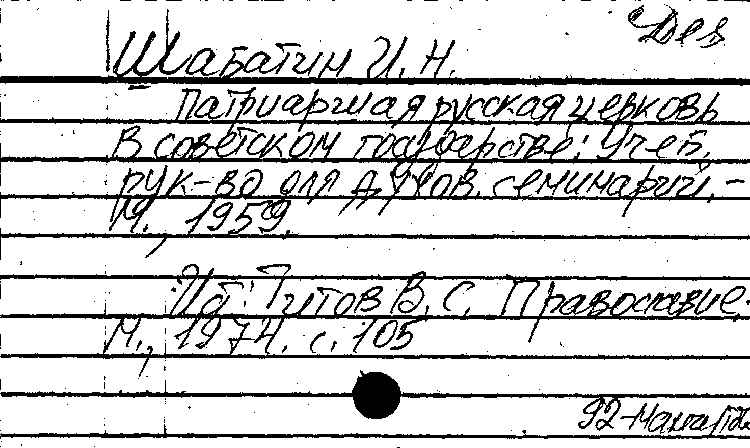 Дев
Шабатин И. Н.
Патриаршая русская церковь
в советском государстве: Учеб.
рук-во для духов. семинарий. –
М., 1959.
Ист: Титов В. С. Православие.
М., 1974. с. 105
92-